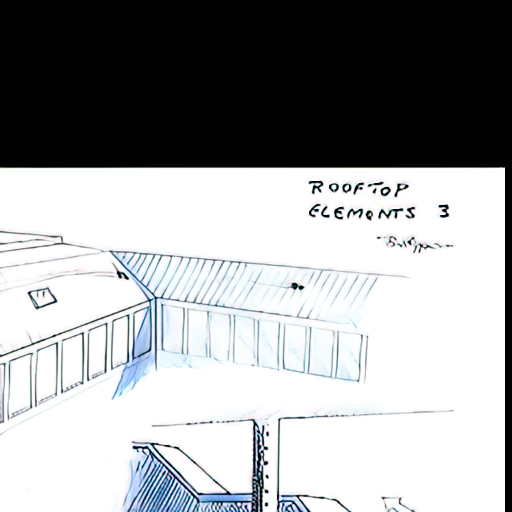 ROOFTOP
ELEMENTS 3